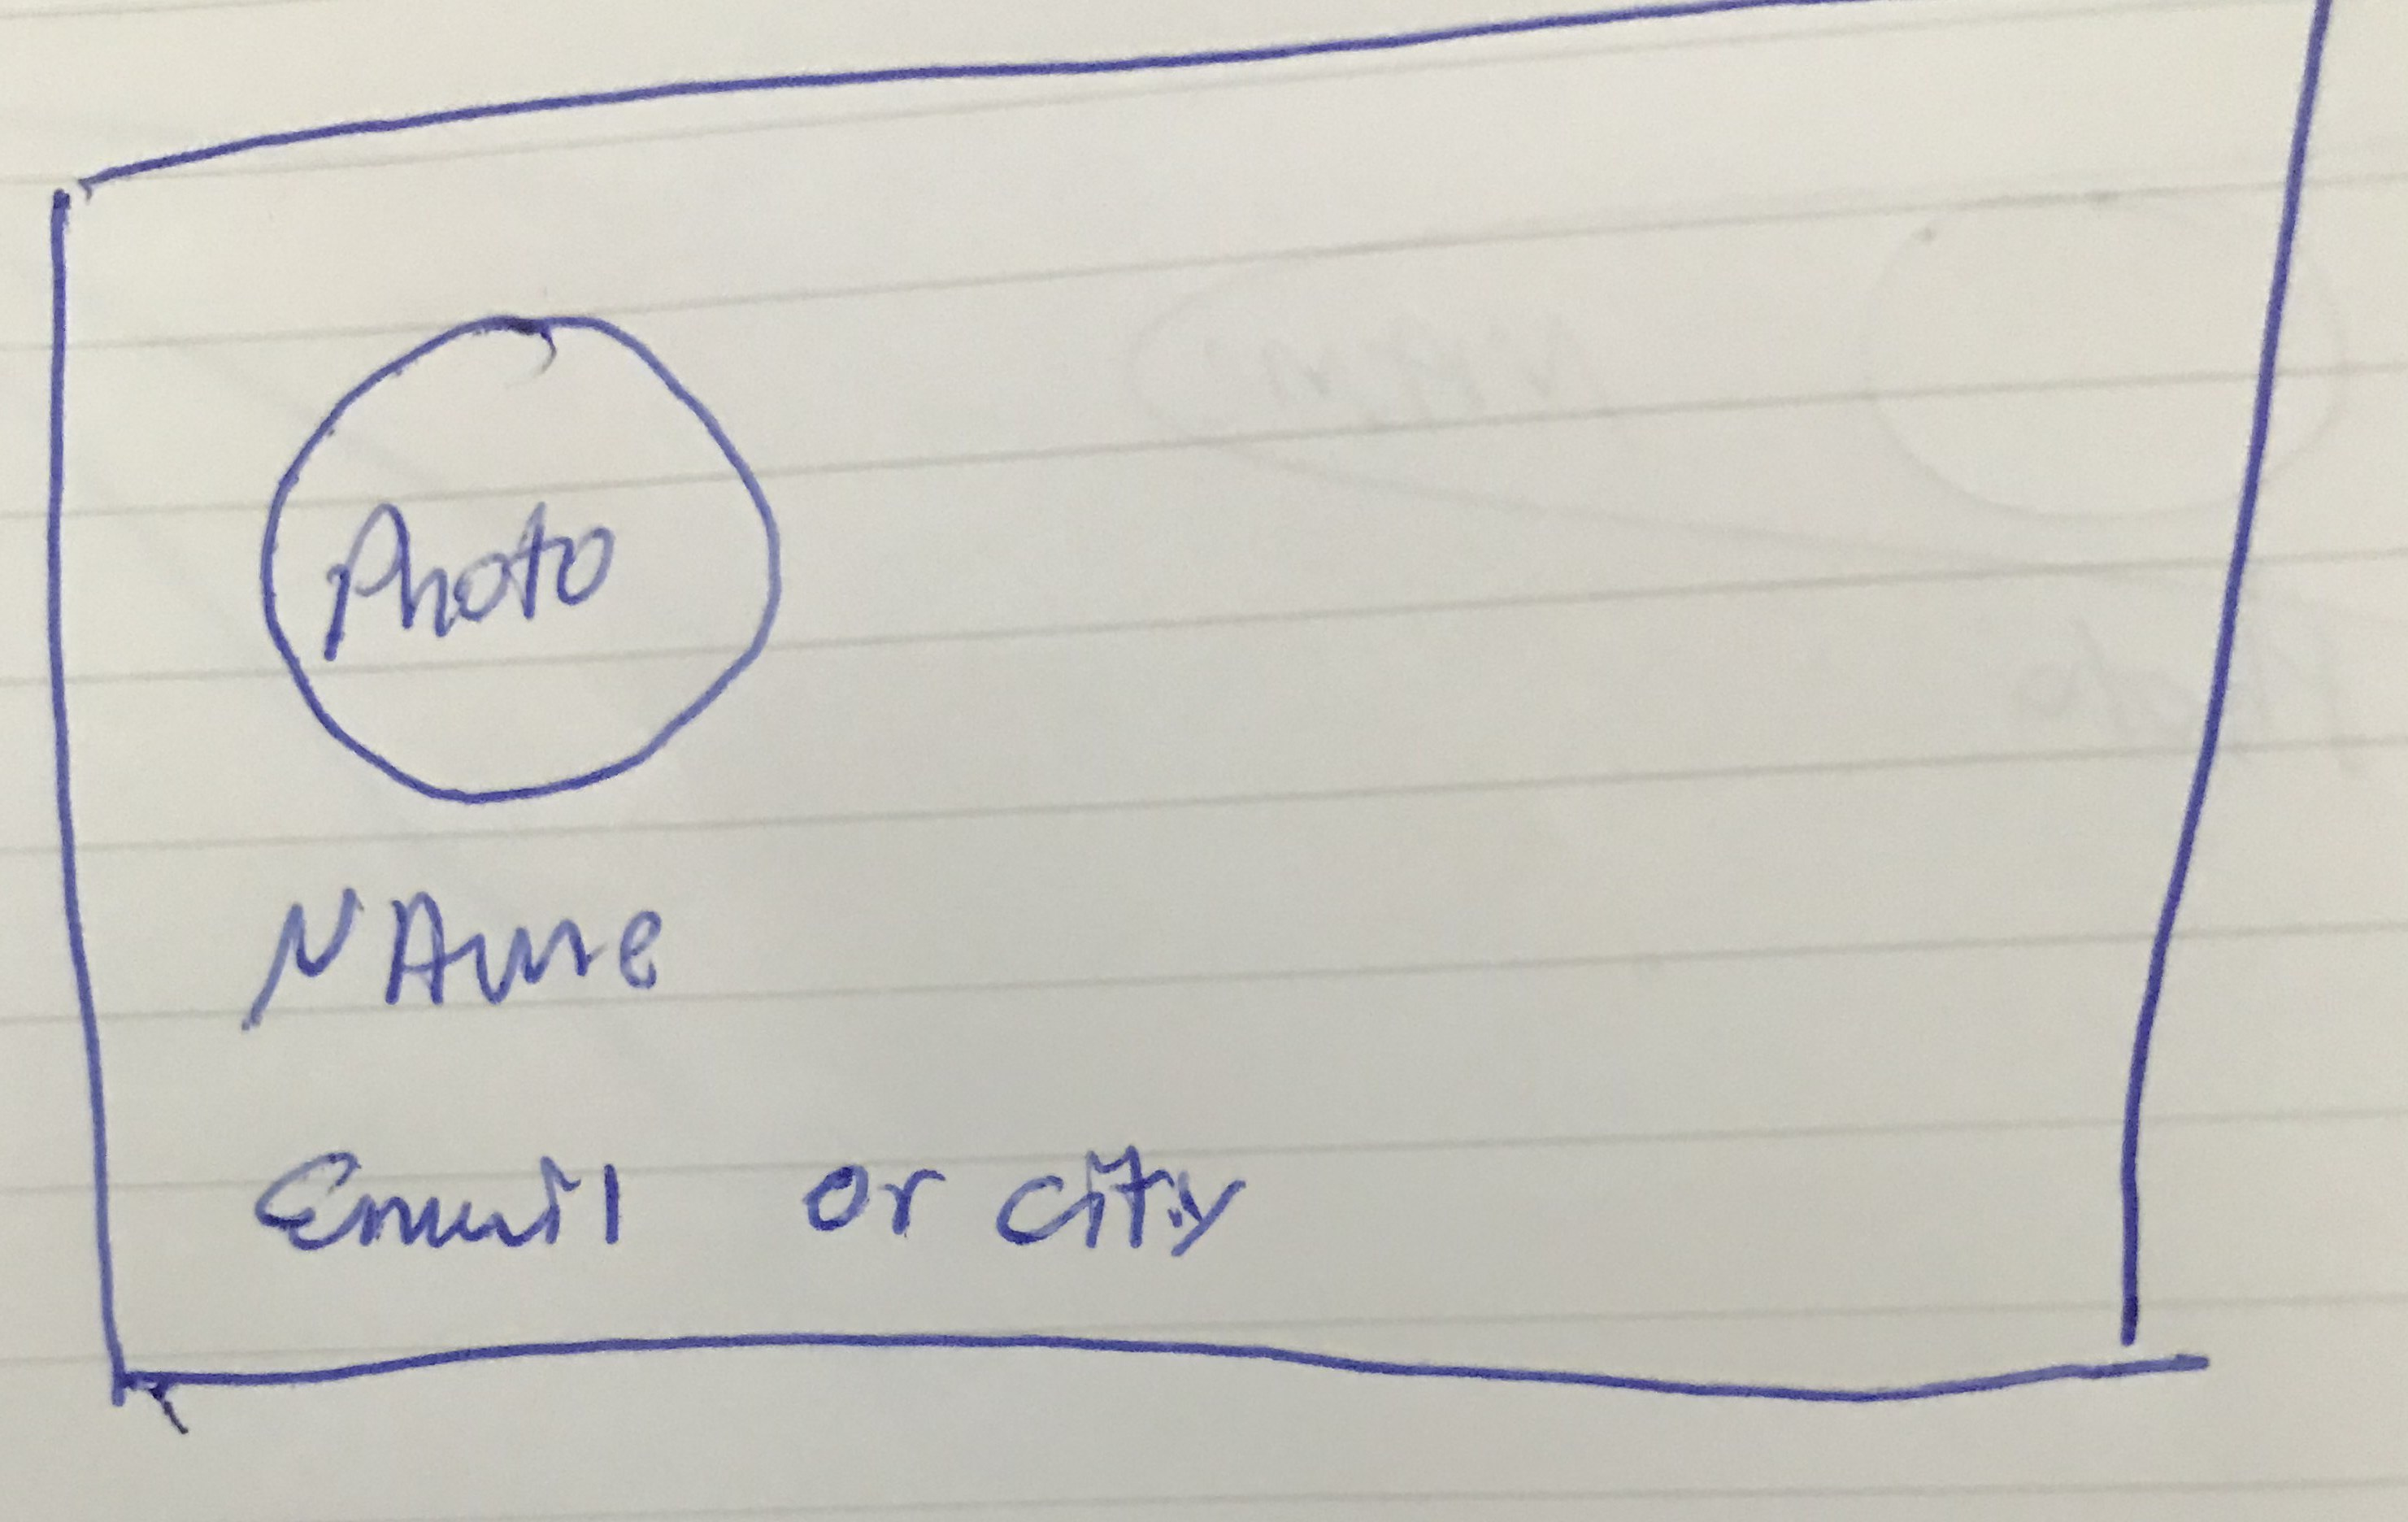 Photo
NAme
Email or city